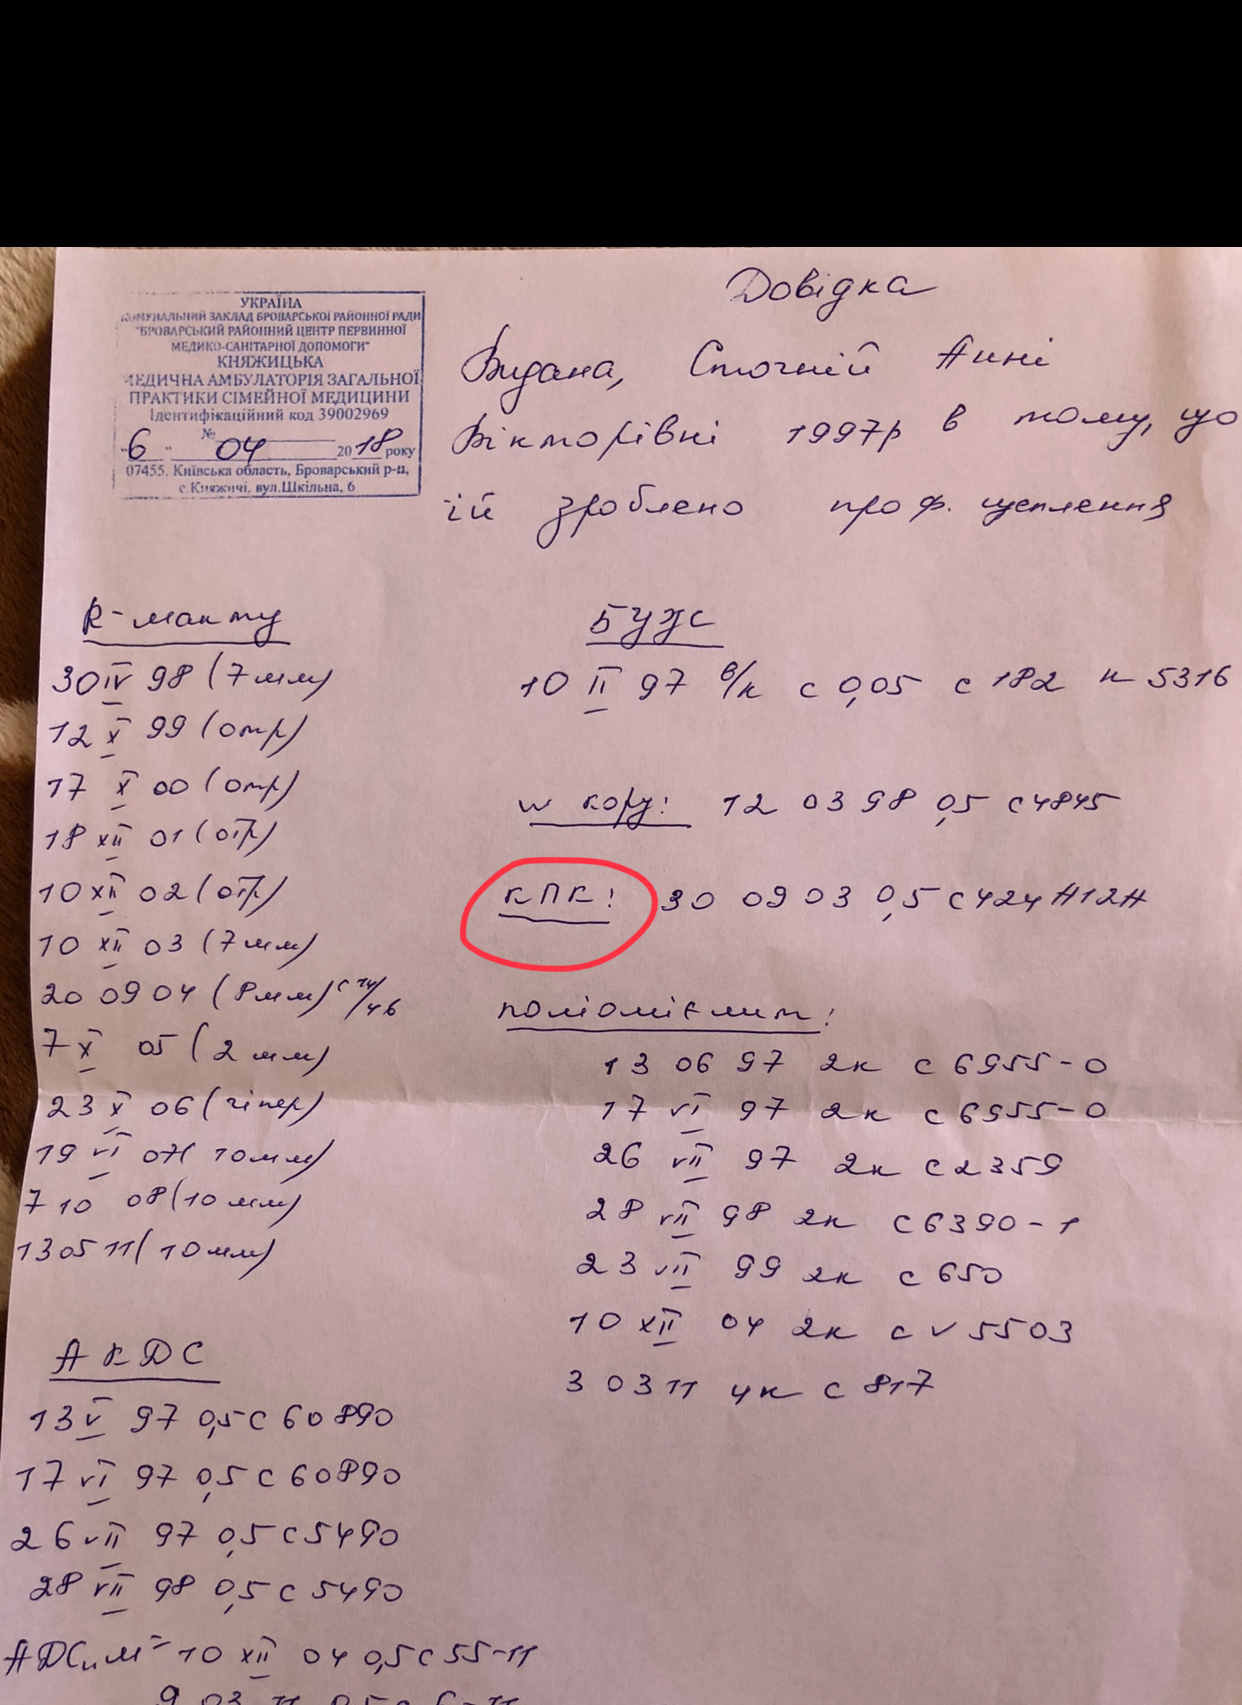 УКРАЇНА
КОМУНАЛЬНИЙ ЗАКЛАД БРОВАРСЬКОЇ РАЙОННОЇ РАДИ
"БРОВАРСЬКИЙ РАЙОННИЙ ЦЕНТР ПЕРВИННОЇ
МЕДИКО-САНІТАРНОЇ ДОПОМОГИ"
КНЯЖИЦЬКА
МЕДИЧНА АМБУЛАТОРІЯ ЗАГАЛЬНОЇ
ПРАКТИКИ СІМЕЙНОЇ МЕДИЦИНИ
Ідентифікаційний код 39002969
№
"6" 04 2018 року
07455. Київська область, Броварський р-н,
с.Княжичі, вул.Шкільна, 6
Довідка
Видана, Сточній Анні
Вікторівні 1997р в тому, що
їй зроблено проф. щеплення
R-манту
30 IV 98 (7 мм)
12 X 99 (отр)
17 X 00 (отр)
18 XII 01 (отр)
10 XII 02 (отр)
10 XII 03 (7 мм)
20 09 04 (8 мм) с 14/46
7 X 05 (2 мм)
23 X 06 (гіпер)
19 VI 07 (10 мм)
7 10 08 (10 мм)
13 05 11 (10 мм)
АКДС
13 V 97 0,5 с 60890
17 VI 97 0,5 с 60890
26 VII 97 0,5 с 5490
28 VII 98 0,5 с 5490
АДСм = 10 XII 04 0,5 с 55-11
9 03 11 0,5 с 6-11
БЦЖ
10 II 97 в/к с 0,05 с 182 к 5316
w кору: 12 03 98 0,5 с 4845
КПК: 30 09 03 0,5 с 424 А12А
поліомієлит:
13 06 97 2к с 6955-0
17 VI 97 2к с 6955-0
26 VII 97 2к с 2359
28 VII 98 2к с 6390-1
23 VII 99 2к с 650
10 XII 04 2к с v 5503
3 03 11 4к с 817